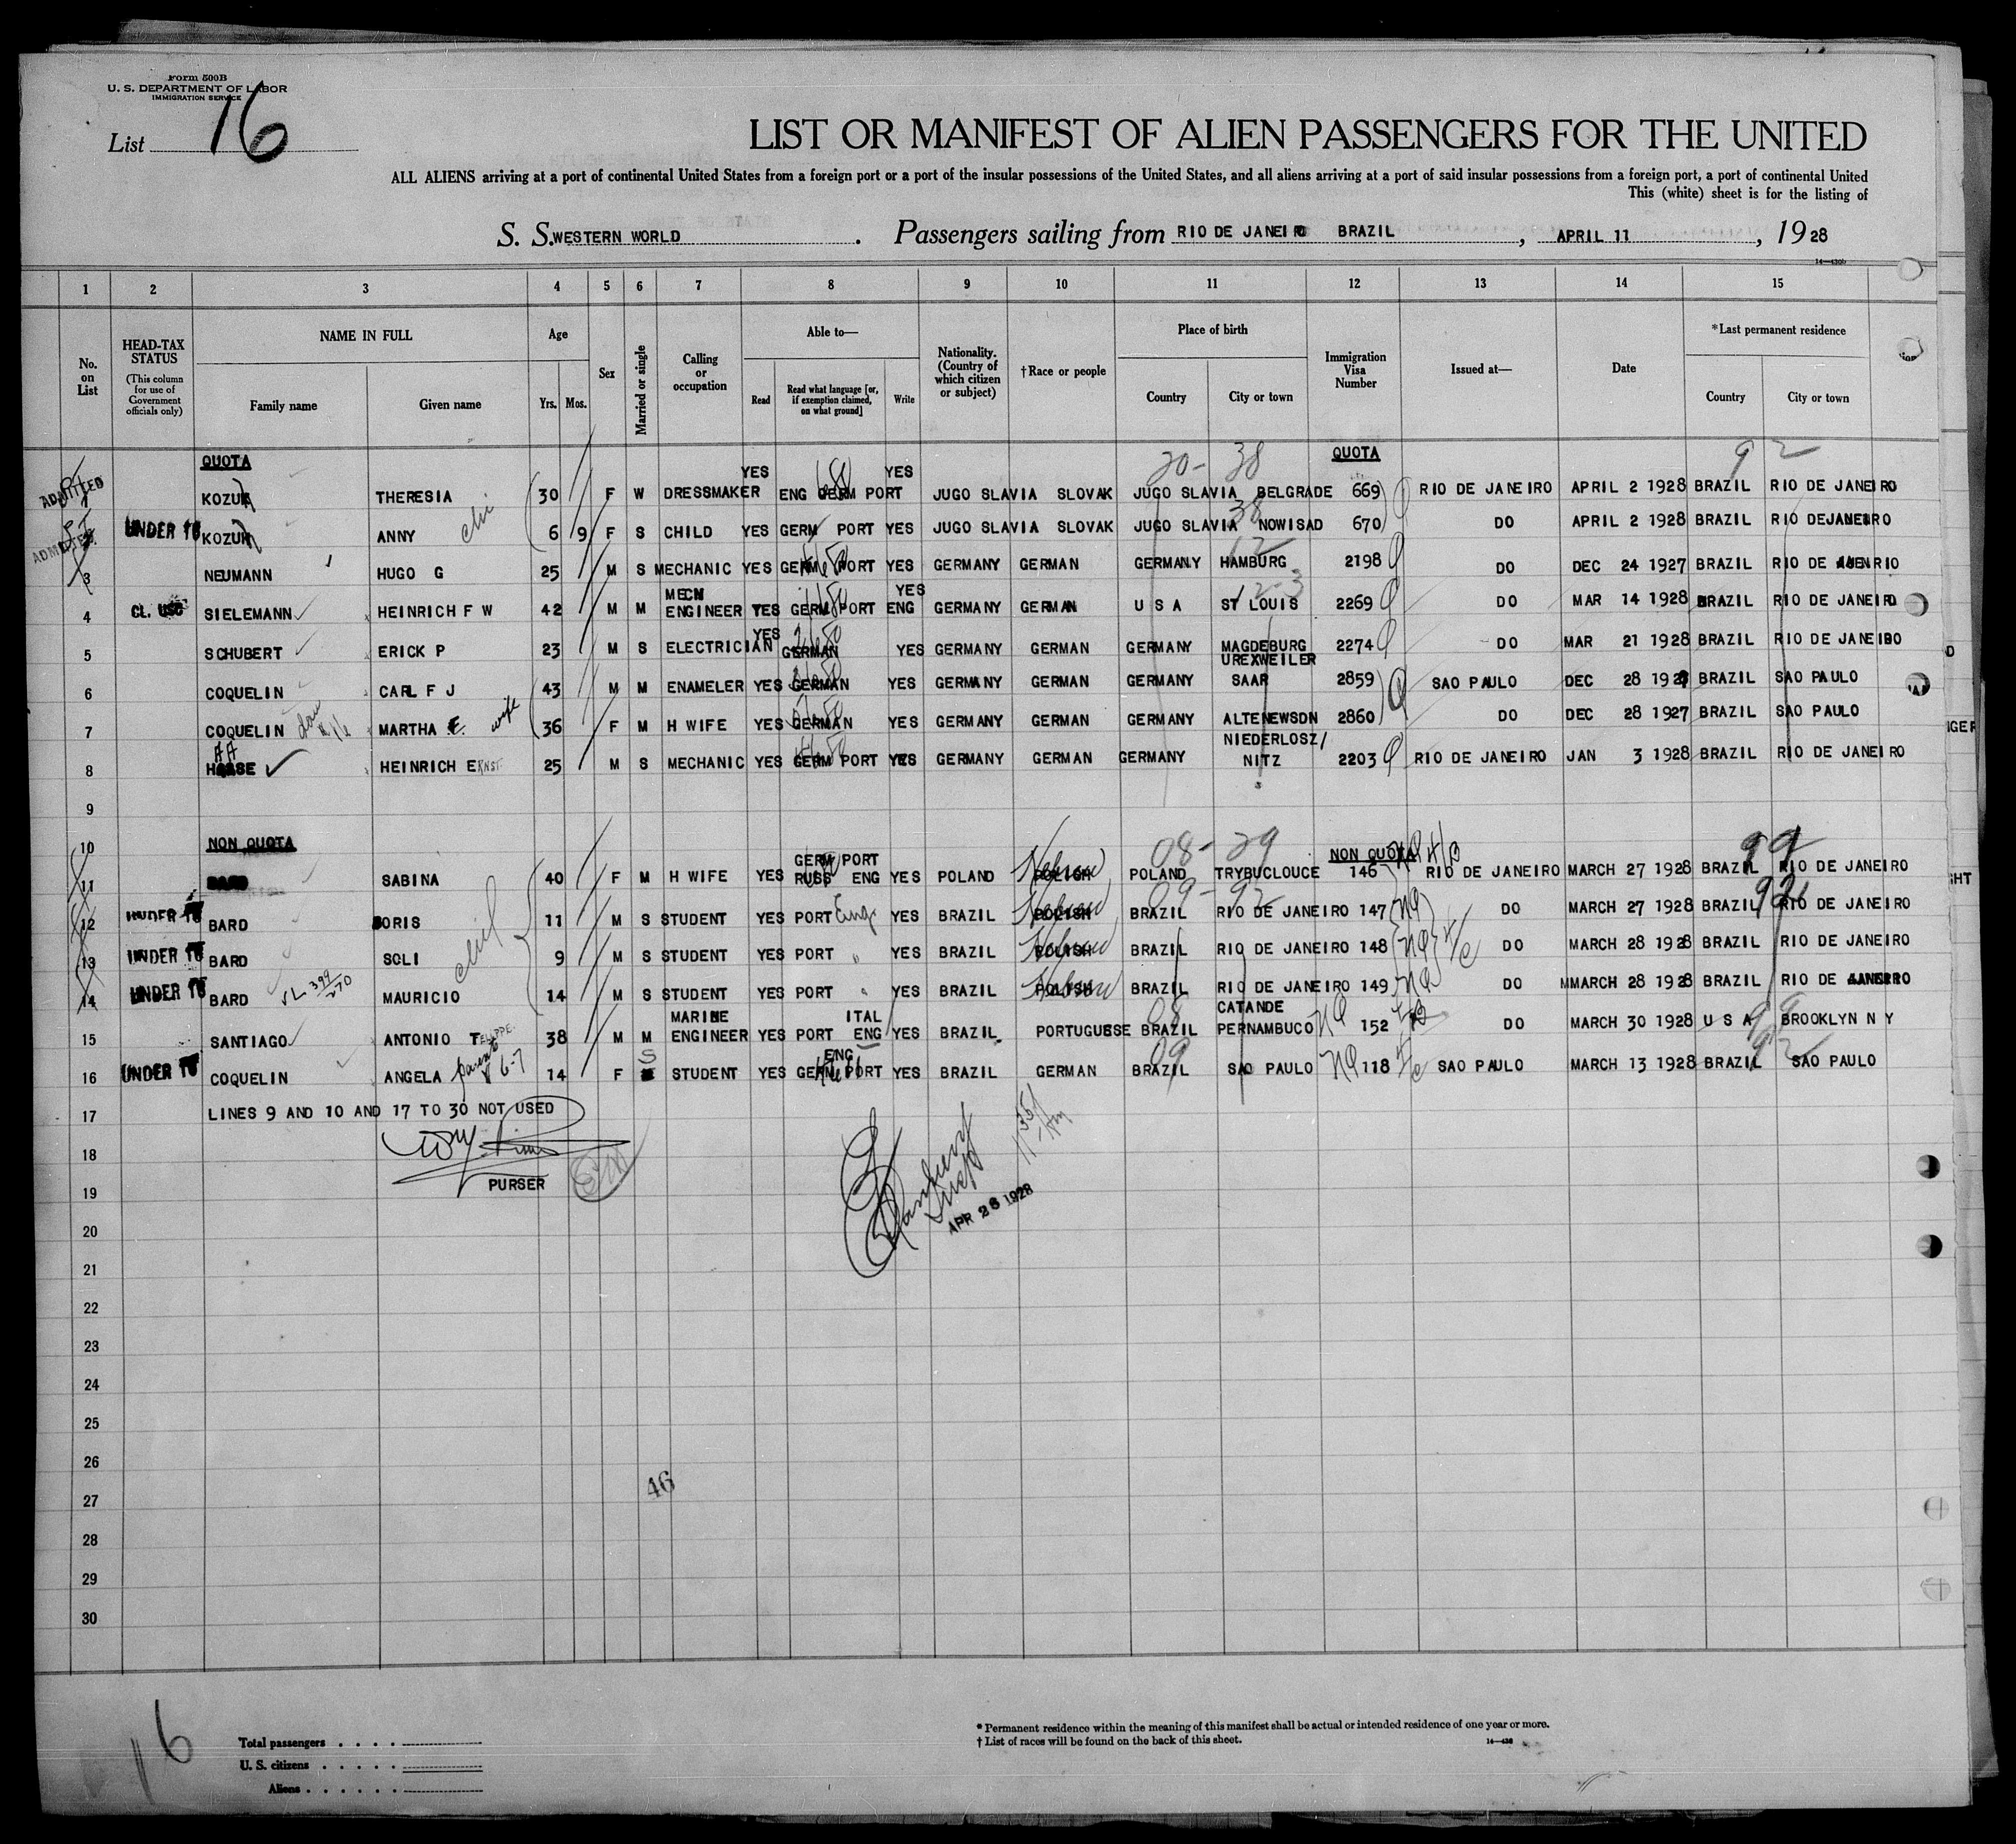 Form 500B
U. S. DEPARTMENT OF LABOR
IMMIGRATION SERVICE
List 16
LIST OR MANIFEST OF ALIEN PASSENGERS FOR THE UNITED
ALL ALIENS arriving at a port of continental United States from a foreign port or a port of the insular possessions of the United States, and all aliens arriving at a port of said insular possessions from a foreign port, a port of continental United
This (white) sheet is for the listing of
S. S. WESTERN WORLD . Passengers sailing from RIO DE JANEIRO BRAZIL , APRIL 11 , 19 28
1 2 3 4 5 6 7 8 9 10 11 12 13 14 15
No. on List
HEAD-TAX STATUS (This column for use of Government officials only)
NAME IN FULL Family name Given name
Age Yrs. Mos.
Sex
Married or single
Calling or occupation
Able to— Read Read what language [or, if exemption claimed, on what ground] Write
Nationality. (Country of which citizen or subject)
†Race or people
Place of birth Country City or town
Immigration Visa Number
Issued at—
Date
*Last permanent residence Country City or town
QUOTA QUOTA
20- 38 92
ADMITTED 1 KOZUH THERESIA 30 F W DRESSMAKER YES ENG GERM PORT YES JUGO SLAVIA SLOVAK JUGO SLAVIA BELGRADE 669 RIO DE JANEIRO APRIL 2 1928 BRAZIL RIO DE JANEIRO
ADMITTED UNDER 16 KOZUH ANNY chi 6 9 F S CHILD YES GERM PORT YES JUGO SLAVIA SLOVAK JUGO SLAVIA 38 NOWISAD 670 DO APRIL 2 1928 BRAZIL RIO DE JANEIRO
3 NEUMANN HUGO G 25 M S MECHANIC YES GERM PORT YES GERMANY GERMAN GERMANY HAMBURG 2198 DO DEC 24 1927 BRAZIL RIO DE
4 CL. USC SIELEMANN HEINRICH F W 42 M M MECH ENGINEER YES GERM PORT ENG YES GERMANY GERMAN U S A ST LOUIS 2269 DO MAR 14 1928 BRAZIL RIO DE JANEIRO
5 SCHUBERT ERICK P 23 M S ELECTRICIAN YES GERMAN YES GERMANY GERMAN GERMANY MAGDEBURG 2274 DO MAR 21 1928 BRAZIL RIO DE JANEIRO
6 COQUELIN CARL F J 43 M M ENAMELER YES GERMAN YES GERMANY GERMAN GERMANY UREXWEILER SAAR 2859 SAO PAULO DEC 28 BRAZIL SAO PAULO
7 COQUELIN MARTHA E. wife 36 F M H WIFE YES GERMAN YES GERMANY GERMAN GERMANY ALTENEWSDN 2860 DO DEC 28 1927 BRAZIL SAO PAULO
8 HAASE HEINRICH ERNST 25 M S MECHANIC YES GERM PORT YES GERMANY GERMAN GERMANY NIEDERLOSZ/ NITZ 2203 RIO DE JANEIRO JAN 3 1928 BRAZIL RIO DE JANEIRO
9
10 NON QUOTA NON QUOTA
08- 29 99
11 SABINA 40 F M H WIFE YES GERM PORT RUSS ENG YES POLAND Hebrew POLISH POLAND TRYBUCLOUCE 146 RIO DE JANEIRO MARCH 27 1928 BRAZIL RIO DE JANEIRO
09- 92
12 UNDER 16 BARD BORIS 11 M S STUDENT YES PORT Eng YES BRAZIL Hebrew POLISH BRAZIL RIO DE JANEIRO 147 NQ DO MARCH 27 1928 BRAZIL RIO DE JANEIRO
13 UNDER 16 BARD SOLI 9 M S STUDENT YES PORT " YES BRAZIL Hebrew POLISH BRAZIL RIO DE JANEIRO 148 NQ DO MARCH 28 1928 BRAZIL RIO DE JANEIRO
14 UNDER 16 BARD MAURICIO 14 M S STUDENT YES PORT " YES BRAZIL Hebrew POLISH BRAZIL RIO DE JANEIRO 149 NQ DO MMARCH 28 1928 BRAZIL RIO DE JANEIRO
15 SANTIAGO ANTONIO 38 M M MARINE ENGINEER YES PORT ITAL ENG YES BRAZIL PORTUGUESE BRAZIL CATANDE PERNAMBUCO NQ 152 DO MARCH 30 1928 U S A BROOKLYN N Y
16 UNDER 16 COQUELIN ANGELA 6-7 14 F S STUDENT YES GERM PORT ENG YES BRAZIL GERMAN BRAZIL SAO PAULO NQ 118 SAO PAULO MARCH 13 1928 BRAZIL SAO PAULO
17 LINES 9 AND 10 AND 17 TO 30 NOT USED
18
PURSER
19
APR 28 1928
20
21
22
23
24
25
26
46
27
28
29
30
16
Total passengers
U. S. citizens
Aliens
* Permanent residence within the meaning of this manifest shall be actual or intended residence of one year or more.
† List of races will be found on the back of this sheet.